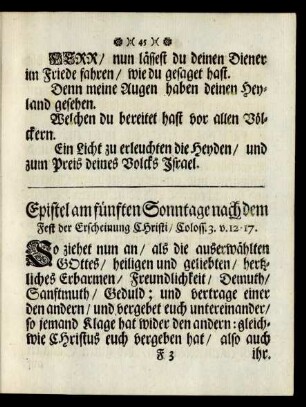 45
HERR/ nun lässest du deinen Diener
im Friede fahren/ wie du gesaget hast.
Denn meine Augen haben deinen Hey-
land gesehen.
Welchen du bereitet hast vor allen Völ-
ckern.
Ein Licht zu erleuchten die Heyden/ und
zum Preis deines Volcks Israel.
Epistel am fünften Sonntage nach dem
Fest der Erscheinung CHristi/ Coloss. 3. v. 12-17.
So ziehet nun an/ als die auserwählten
GOttes/ heiligen und geliebten/ hertz-
liches Erbarmen/ Freundlichkeit/ Demuth/
Sanftmuth/ Geduld; und vertrage einer
den andern/ und vergebet euch untereinander/
so jemand Klage hat wider den andern: gleich-
wie CHristus euch vergeben hat/ also auch
F 3 ihr.